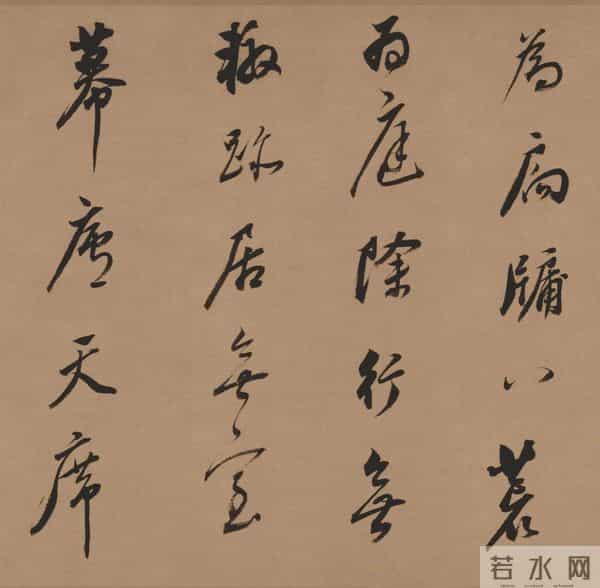 為扃牖八荒
為庭除行無
轍跡居無室
幕廬天席
若水网